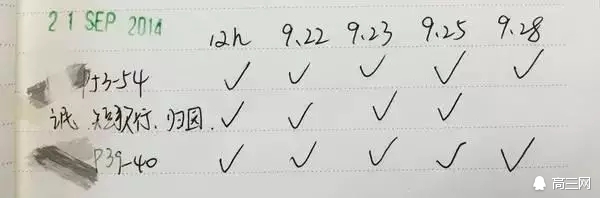 21 SEP 2014 12h 9.22 9.23 9.25 9.28
P53-54 ✓ ✓ ✓ ✓ ✓
氓.短歌行.归园. ✓ ✓ ✓ ✓
P39-40 ✓ ✓ ✓ ✓ ✓
高三网